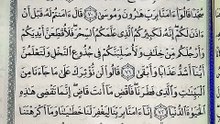 سُجَّدًا قَالُوٓا۟ ءَامَنَّا بِرَبِّ هَـٰرُونَ وَمُوسَىٰ ٧٠ قَالَ ءَامَنتُمْ لَهُۥ قَبْلَ أَنْ
ءَاذَنَ لَكُمْ إِنَّهُۥ لَكَبِيرُكُمُ ٱلَّذِى عَلَّمَكُمُ ٱلسِّحْرَ فَلَأُقَطِّعَنَّ أَيْدِيَكُمْ
وَأَرْجُلَكُم مِّنْ خِلَـٰفٍ وَلَأُصَلِّبَنَّكُمْ فِى جُذُوعِ ٱلنَّخْلِ وَلَتَعْلَمُنَّ
أَيُّنَآ أَشَدُّ عَذَابًا وَأَبْقَىٰ ٧١ قَالُوا۟ لَن نُّؤْثِرَكَ عَلَىٰ مَا جَآءَنَا مِنَ
ٱلْبَيِّنَـٰتِ وَٱلَّذِى فَطَرَنَا فَٱقْضِ مَآ أَنتَ قَاضٍ إِنَّمَا تَقْضِى هَـٰذِهِ
ٱلْحَيَوٰةَ ٱلدُّنْيَآ ٧٢ إِنَّآ ءَامَنَّا بِرَبِّنَا لِيَغْفِرَ لَنَا خَطَـٰيَـٰنَا وَمَآ أَكْرَهْتَنَا